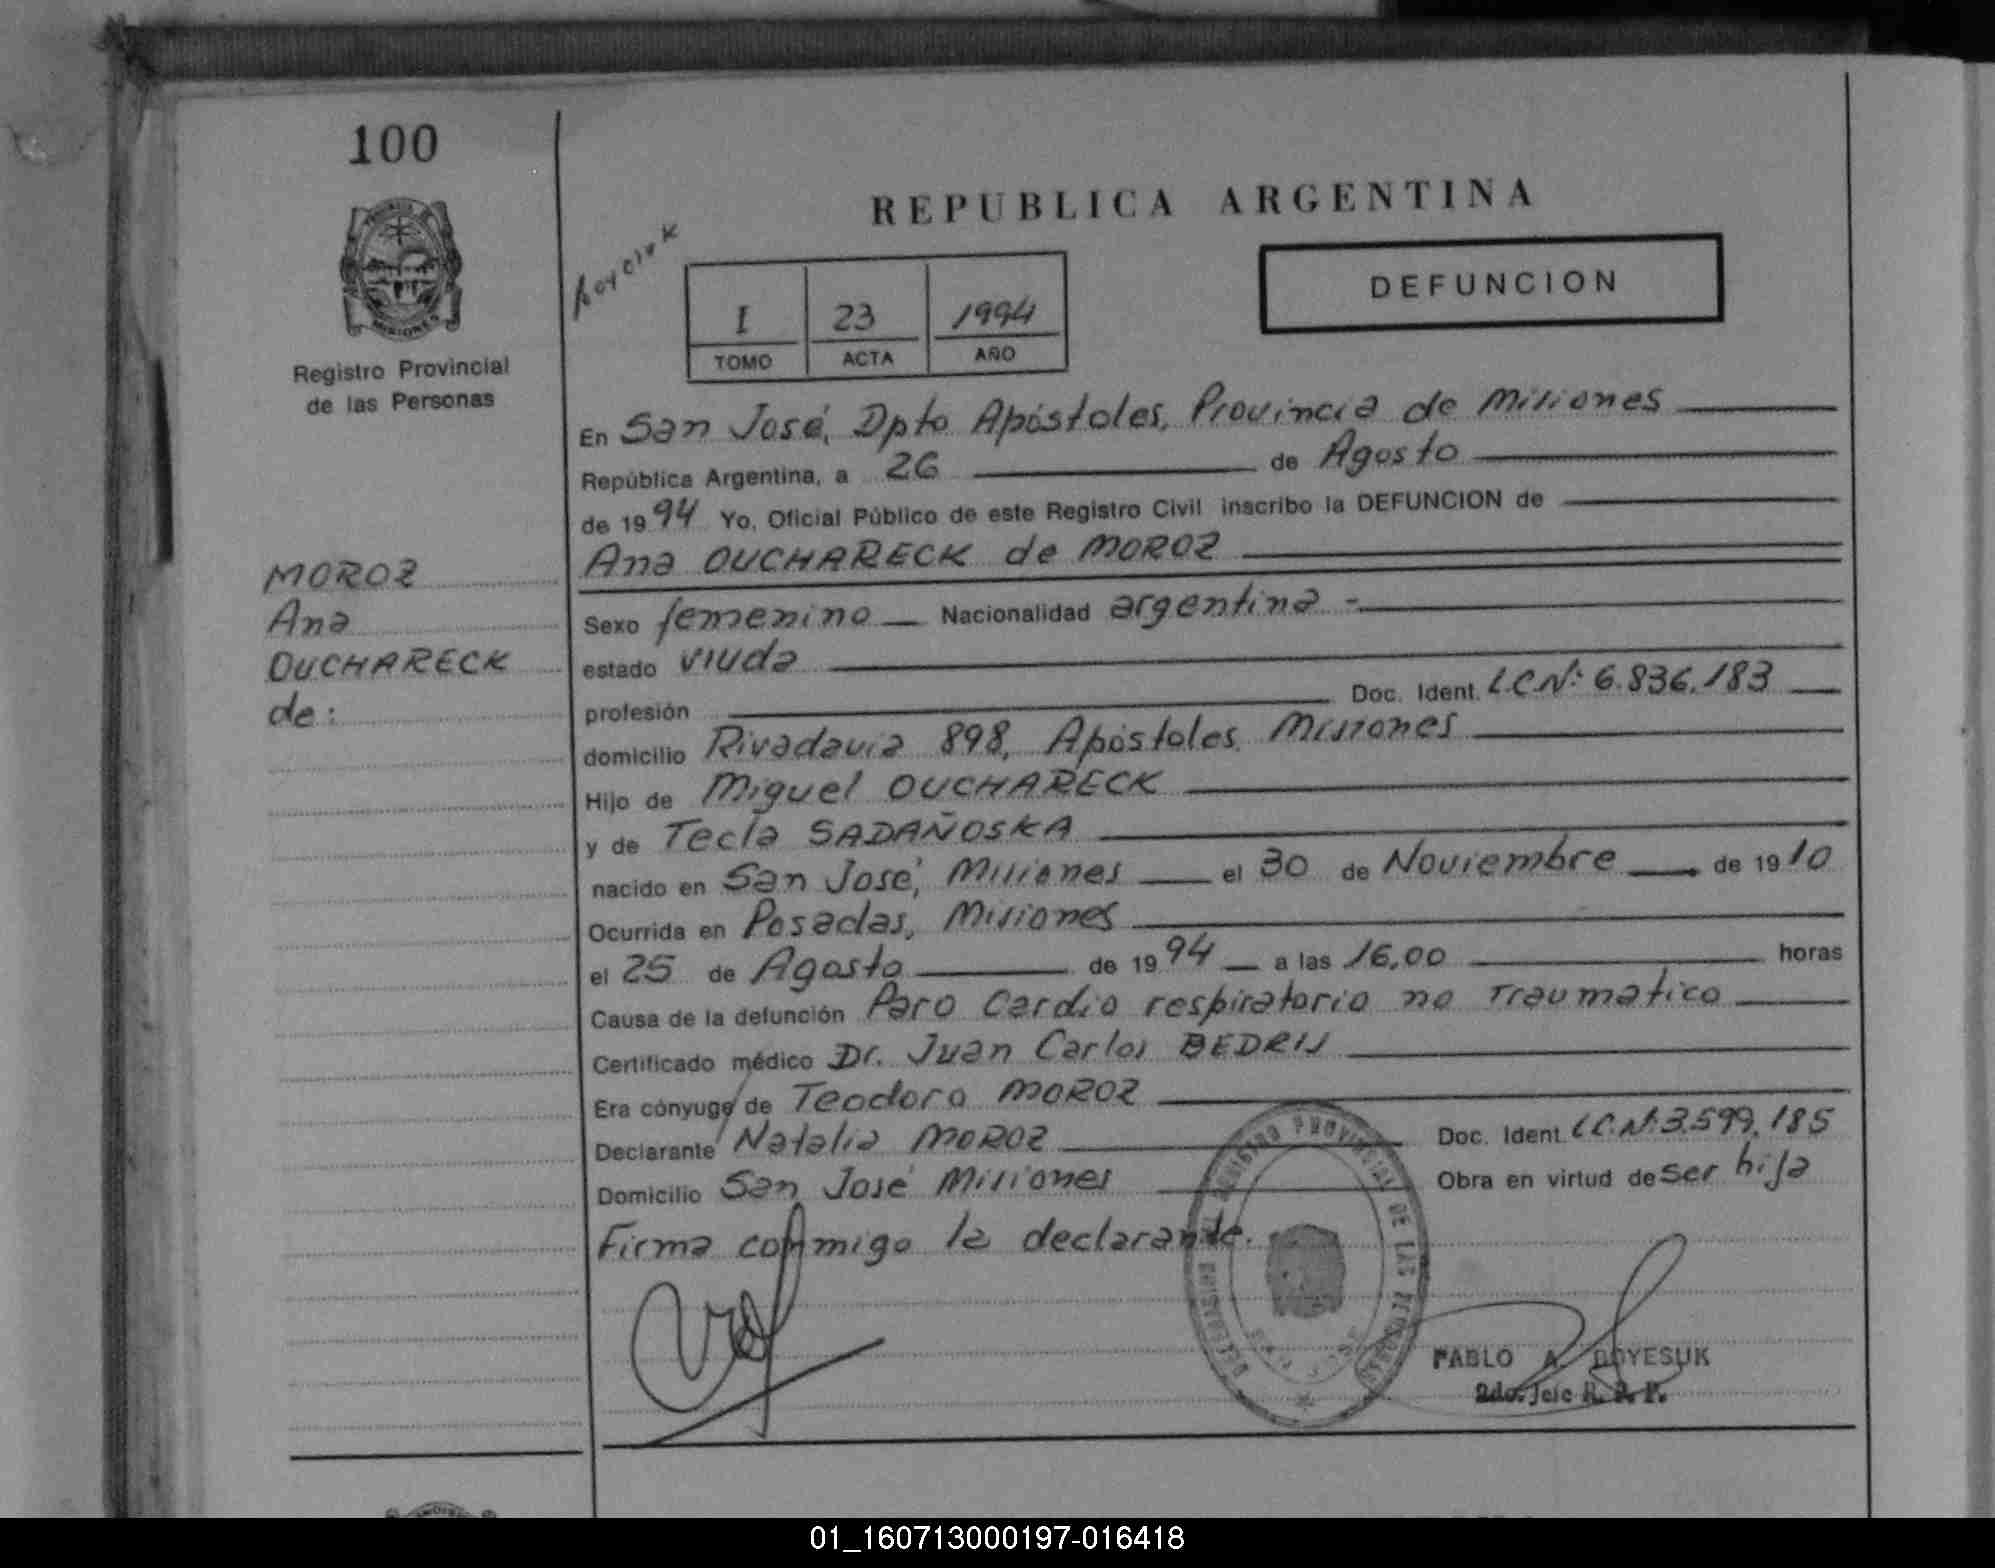 100
REPUBLICA ARGENTINA
DEFUNCION
I 23 1994
TOMO ACTA AÑO
MISIONES
Registro Provincial
de las Personas
En San José, Dpto Apóstoles, Provincia de Misiones
República Argentina, a 26 de Agosto
de 1994 Yo, Oficial Público de este Registro Civil inscribo la DEFUNCION de
Ana OUCHARECK de MOROZ
MOROZ
Ana
OUCHARECK
de:
Sexo femenino Nacionalidad argentina -
estado viuda
profesión Doc. Ident. L.C.Nº: 6.836.183
domicilio Rivadavia 898, Apóstoles Misiones
Hijo de Miguel OUCHARECK
y de Tecla SADAÑOSKA
nacido en San José, Misiones el 30 de Noviembre de 1910
Ocurrida en Posadas, Misiones
el 25 de Agosto de 1994 a las 16,00 horas
Causa de la defunción Paro Cardio respiratorio no Traumatico
Certificado médico Dr. Juan Carlos BEDRIJ
Era cónyuge de Teodoro MOROZ
Declarante Natalia MOROZ Doc. Ident. L.C.Nº: 3.599.185
Domicilio San José Misiones Obra en virtud de ser hija
Firma conmigo la declarante.
REGISTRO PROVINCIAL DE LAS PERSONAS
PABLO A. BOYESUK
2do. Jefe R. P. P.
01_160713000197-016418